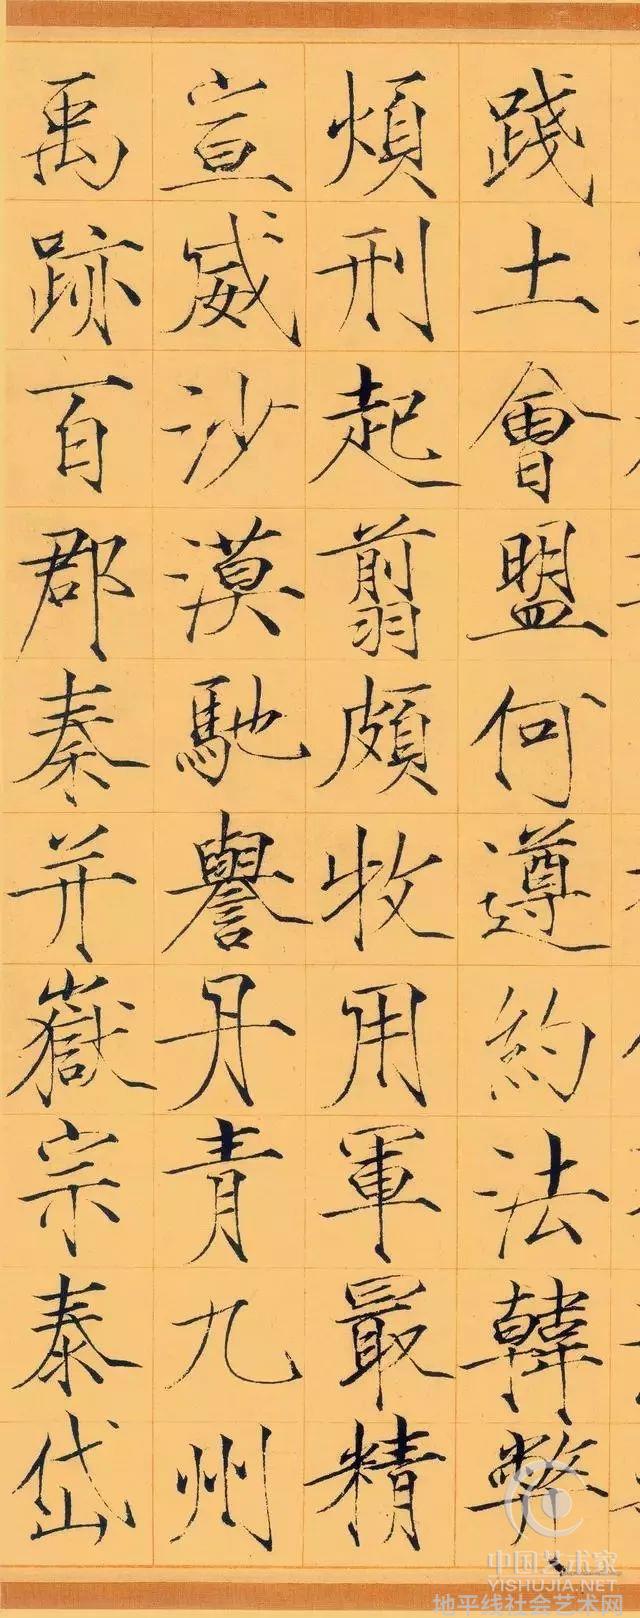 踐土會盟何遵約法韓弊
煩刑起翦頗牧用軍最精
宣威沙漠馳譽丹青九州
禹跡百郡秦并嶽宗泰岱
中国艺术家
YISHUJIA.NET
地平线社会艺术网